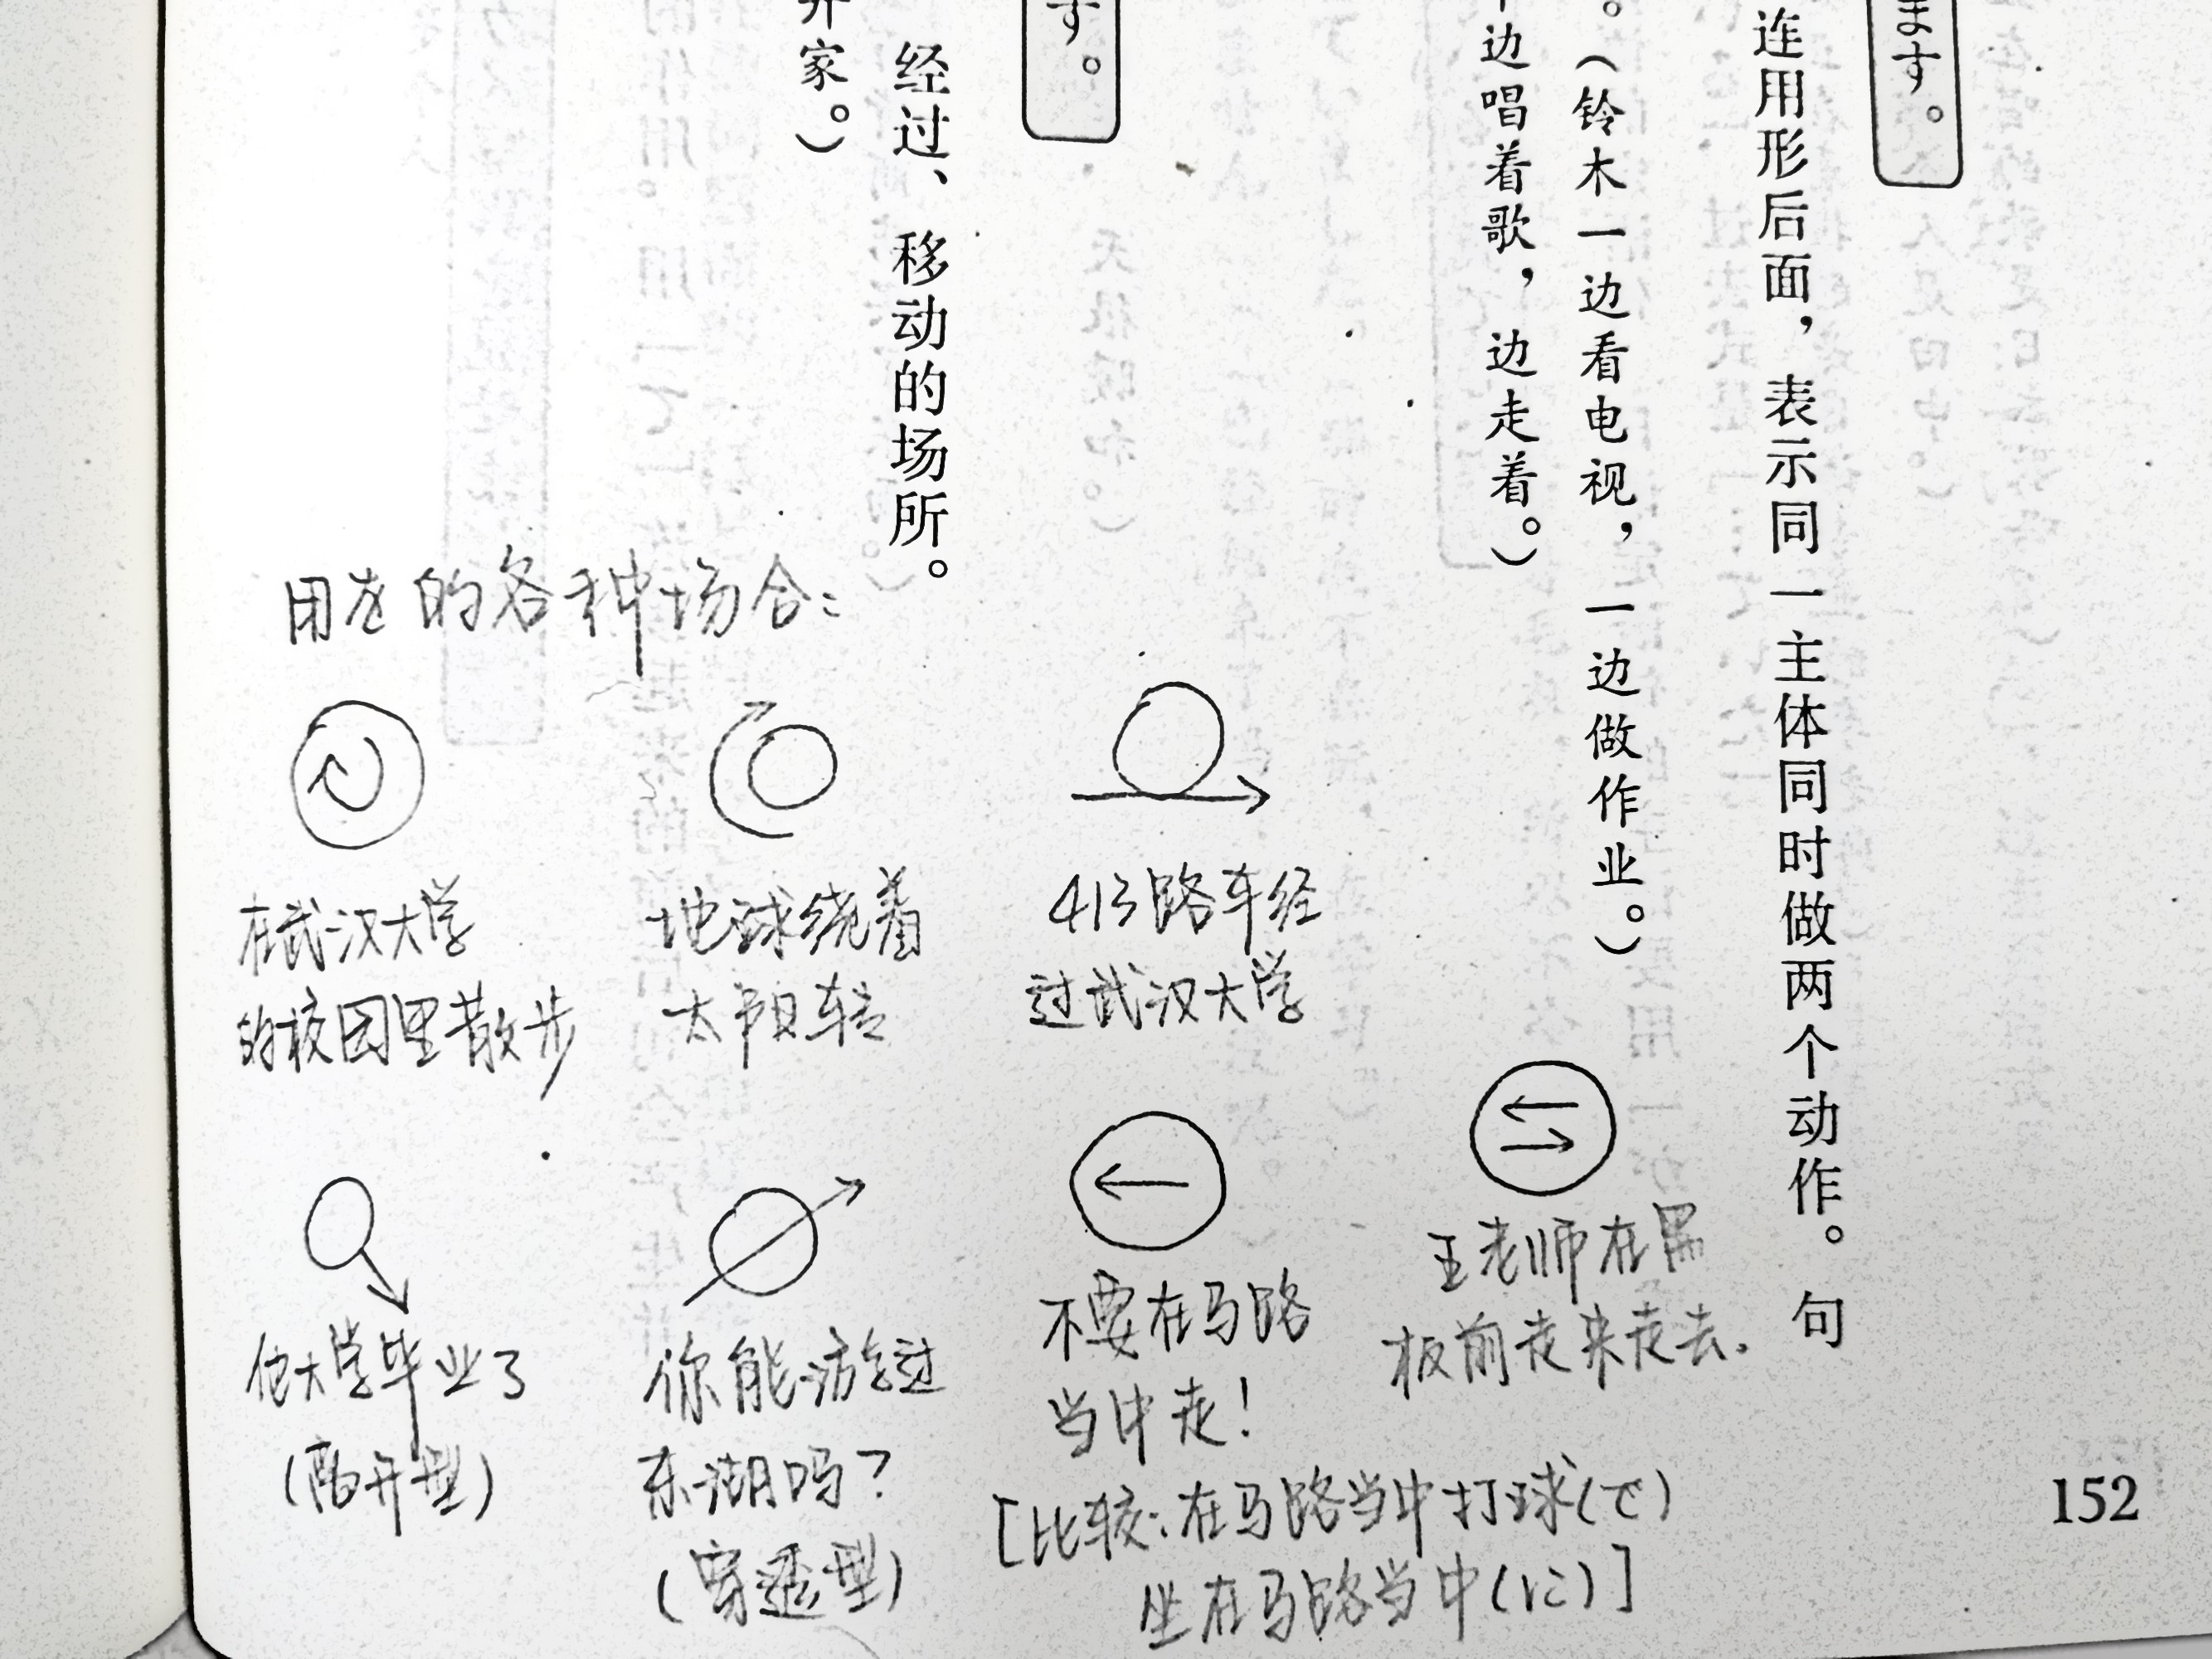 ます。
连用形后面，表示同一主体同时做两个动作。句
。（铃木一边看电视，一边做作业。）
边唱着歌，边走着。）
す。
经过、移动的场所。
开家。）
用を的各种场合：
在武汉大学
的校园里散步
地球绕着
太阳转
413路车经
过武汉大学
他大学毕业了
(离开型)
你能游过
东湖吗？
(穿透型)
不要在马路
当中走！
王老师在黑
板前走来走去.
[比较：在马路当中打球(で)
坐在马路当中(に)]
152